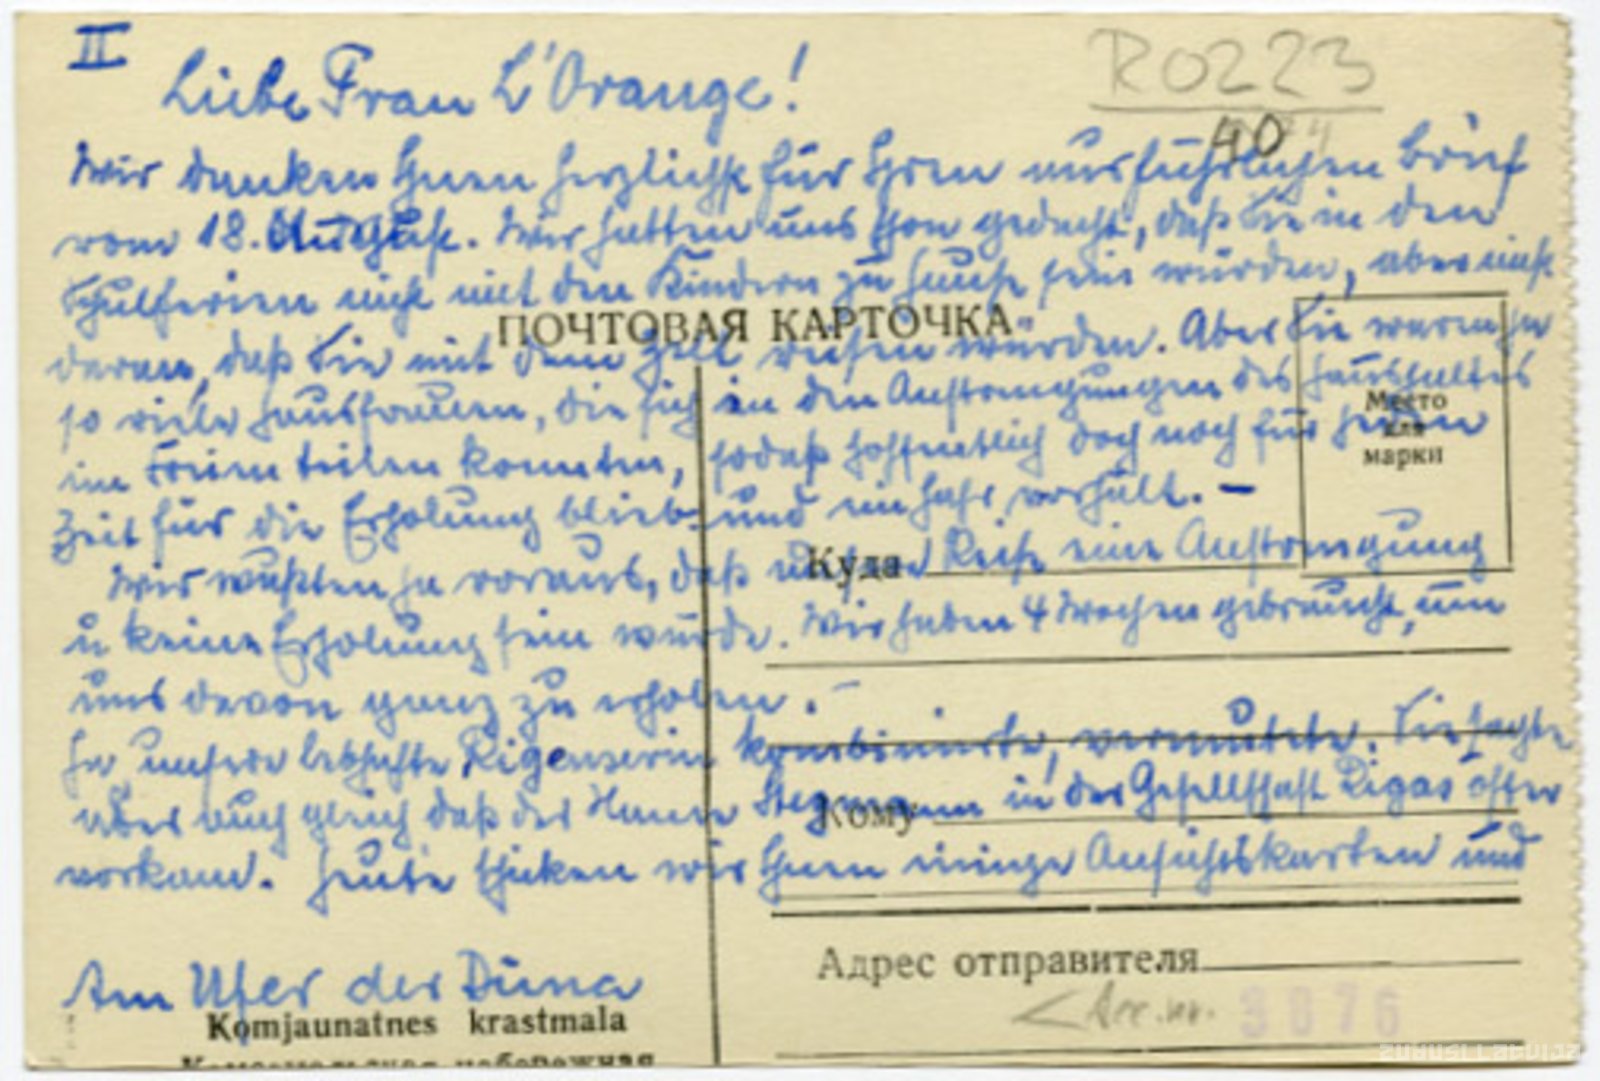 II
R0223
Liebe Frau L'Orange!
40
Wir danken Ihnen herzlichst für Ihren ausführlichen Brief
vom 18. August. Wir hatten uns schon gedacht, daß Sie in den
Schulferien nicht mit den Kindern zu Hause sein würden, aber nicht
daran, daß Sie mit dem Zelt reisen würden. Aber Sie waren ja
so viele Hausfrauen, die sich in den Anstrengungen des Haushaltes
im Freien teilen konnten, sodaß hoffentlich doch noch für jeden
Zeit für die Erholung blieb und ein Jahr vorhält. –
Wir wußten ja voraus, daß unsere Reise eine Anstrengung
u keine Erholung sein würde. Wir haben 4 Wochen gebraucht, um
uns davon ganz zu erholen. –
Ja unsere lebhafte Rigenserin kombinierte, vermutete. Sie sagte
aber auch gleich daß der Name Stegmann in der Gesellschaft Rigas öfter
vorkam. Heute schicken wir Ihnen einige Ansichtskarten und
Am Ufer der Düna
ПОЧТОВАЯ КАРТОЧКА
Место
для
марки
Куда
Кому
Адрес отправителя
Komjaunatnes krastmala
Комсомольская набережная
Acc. nr. 3876
ZUDUSI LATVIJA